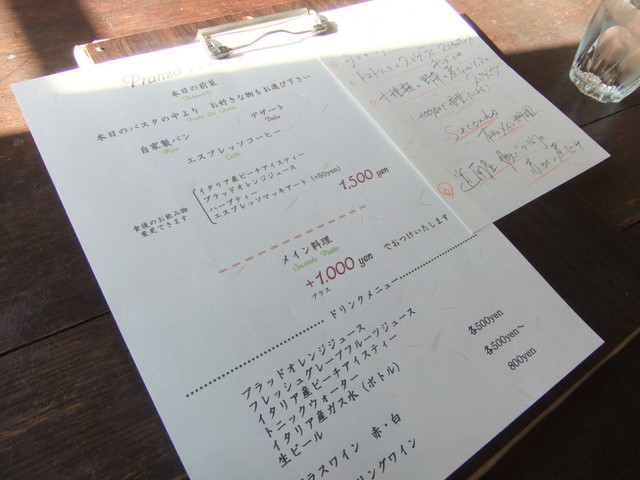 Pranzo
本日の前菜
Antipasto
本日のパスタの中より お好きな物をお選び下さい
Pasta del Giorno
自家製パン
Pane
デザート
Dolce
エスプレッソコーヒー
Caffe
食後のお飲み物
変更できます
イタリア産ピーチアイスティー
ブラッドオレンジジュース
ハーブティー
エスプレッソマッキアート (+50yen)
1,500 yen
メイン料理
Secondo Piatto
+1,000 yen でおつけいたします
プラス
ドリンクメニュー
ブラッドオレンジジュース
フレッシュグレープフルーツジュース
イタリア産ピーチアイスティー
トニックウォーター
イタリア産ガス水 (ボトル)
生ビール
各500yen
各500yen~
800yen
ラスワイン 赤・白
リングワイン
Secondo